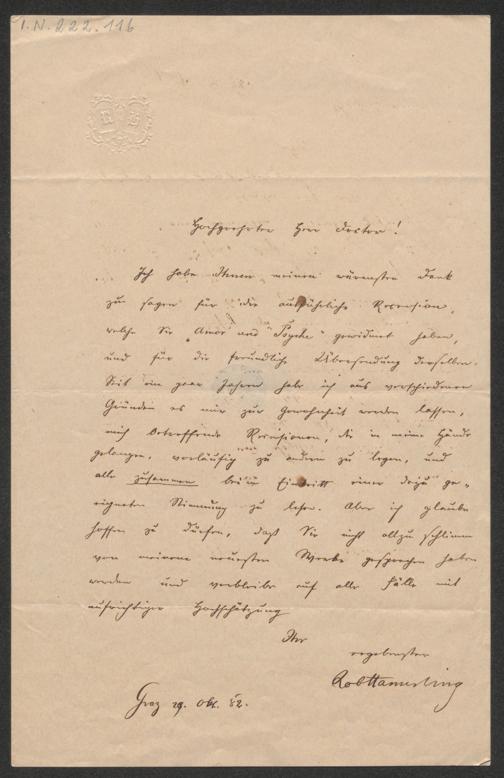 I.N. 222.116
Hochgeehrter Herr Doctor!
Ich habe Ihnen meinen wärmsten Dank
zu sagen für die ausführliche Recension,
welche Sie „Amor und Psyche" gewidmet haben,
und für die freundliche Übersendung derselben.
Seit ein paar Jahren habe ich aus verschiedenen
Gründen es mir zur Gewohnheit werden lassen,
mich betreffende Recensionen, die in meine Hände
gelangen, vorläufig zu andern zu legen, und
alle zusammen beim Eintritt einer dazu ge-
eigneten Stimmung zu lesen. Aber ich glaube
hoffen zu dürfen, daß Sie nicht allzu schlimm
von meinem neuesten Werke gesprochen haben
werden und verbleibe auf alle Fälle mit
aufrichtiger Hochschätzung
Ihr
ergebenster
Rob Hamerling
Graz 29. Okt. 82.